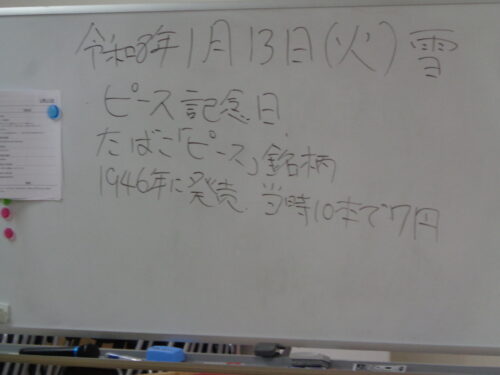 令和8年1月13日(火)雪
ピース記念日
たばこ「ピース」銘柄
1946年に発売.当時10本で7円